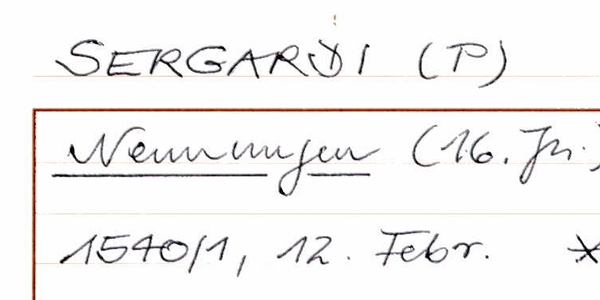 SERGARDI (P)
Nennungen (16. Jh.)
1540/1, 12. Febr. *